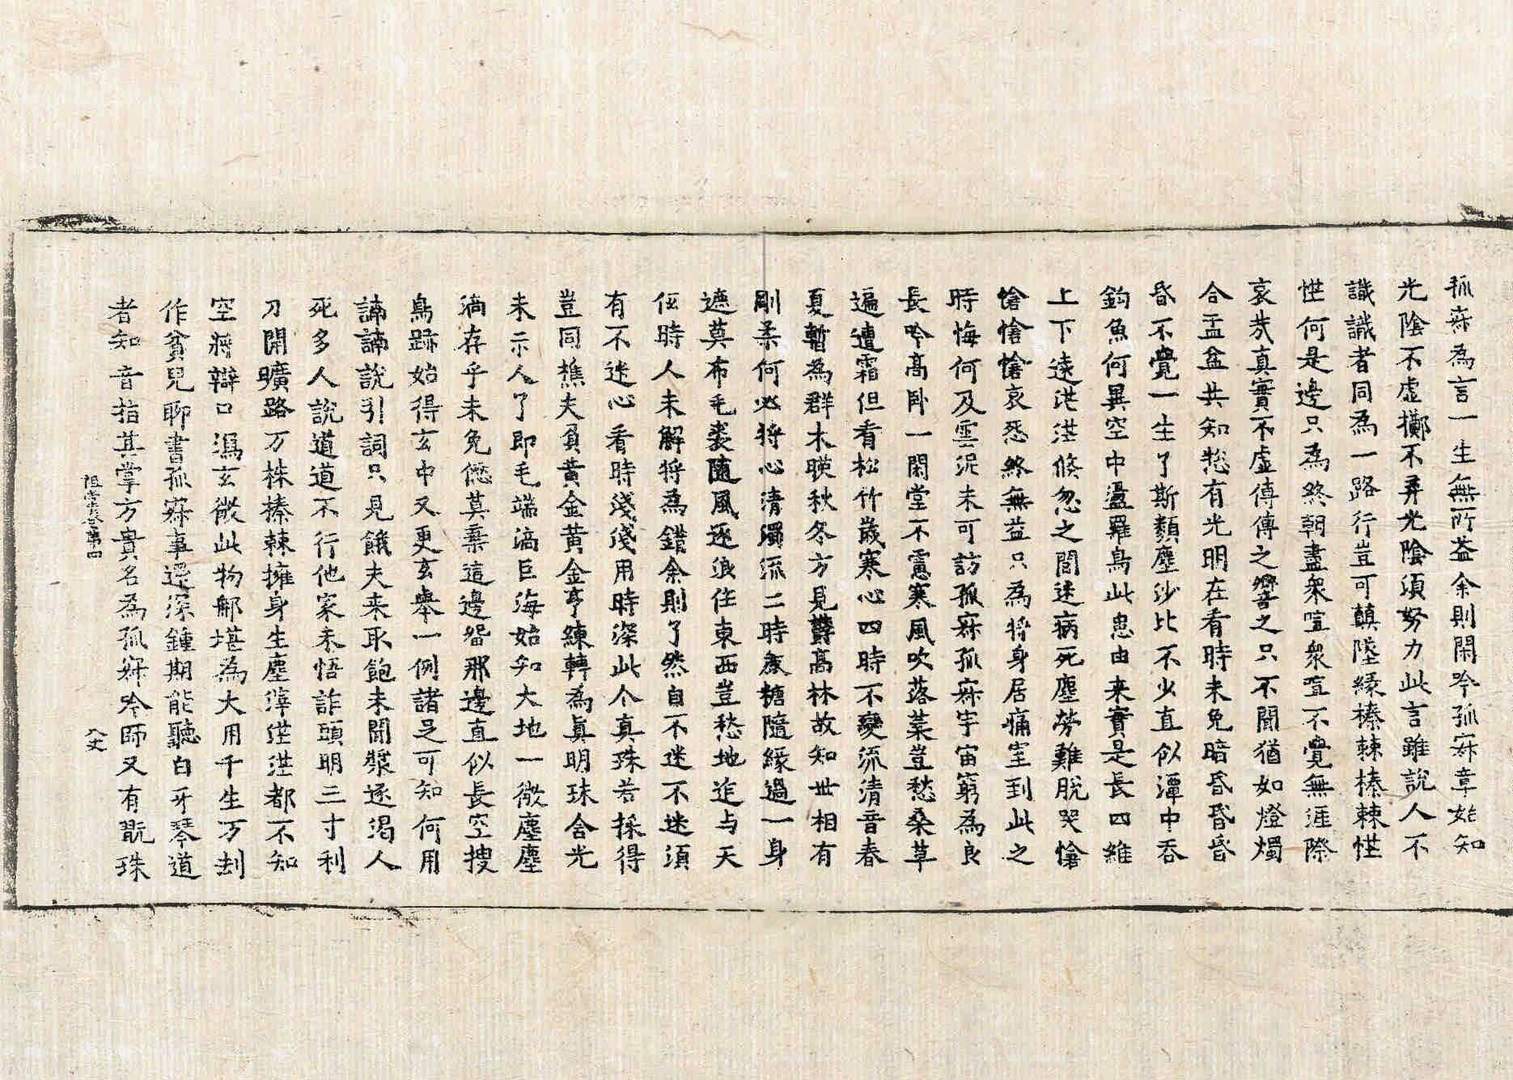 孤㝥為言一生無所益余則閑吟孤㝥章始知
光陰不虛擲不弃光陰須努力此言雖說人不
識識者同為一路行豈可顛墜緣榛棘榛棘恾
恾何是邊只為終朝盡衆喧衆喧不覺無涯際
哀㢤真實不虛傳傳之響之只不聞猶如燈燭
合盂盆共知惣有光明在看時未免暗昏昏昏
昏不覺一生了斯類塵沙比不少直似潭中吞
鈎魚何異空中盪羅鳥此患由來實是長四維
上下遠茫茫倐忽之間迷病死塵勞難脫哭愴
愴愴愴哀怨終無益只為將身居痛室到此之
時悔何及雲泥未可訪孤㝥孤㝥宇宙窮為良
長吟高卧一閑堂不慮寒風吹落葉豈愁桑草
遍遭霜但看松竹歲寒心四時不變流清音春
夏暫為群木暎秋冬方見欝高林故知世相有
剛柔何必將心清濁流二時麁糖隨緣過一身
遮莫布毛裘隨風逐浪住東西豈愁地迮与天
伍時人未解將為錯余則了然自不迷不迷須
有不迷心看時淺淺用時深此个真珠若採得
豈同樵夫負黃金黃金亨練轉為真明珠含光
未示人了即毛端滴巨海始知大地一微塵塵
滴存乎未免僁莫棄這邊㽞那邊直似長空搜
鳥跡始得玄中又更玄舉一例諸足可知何用
諵諵說引詞只見餓夫来取飽未聞漿逐渴人
死多人說道道不行他家未悟詐頭明三寸利
刀開曠路万株榛棘擁身生塵滓茫茫都不知
空將辯口瀉玄微此物那堪為大用千生万刧
作貧兒聊書孤㝥事還深鍾期能聽白牙琴道
者知音指其掌方貴名為孤㝥吟師又有翫珠
祖堂卷第四
八丈